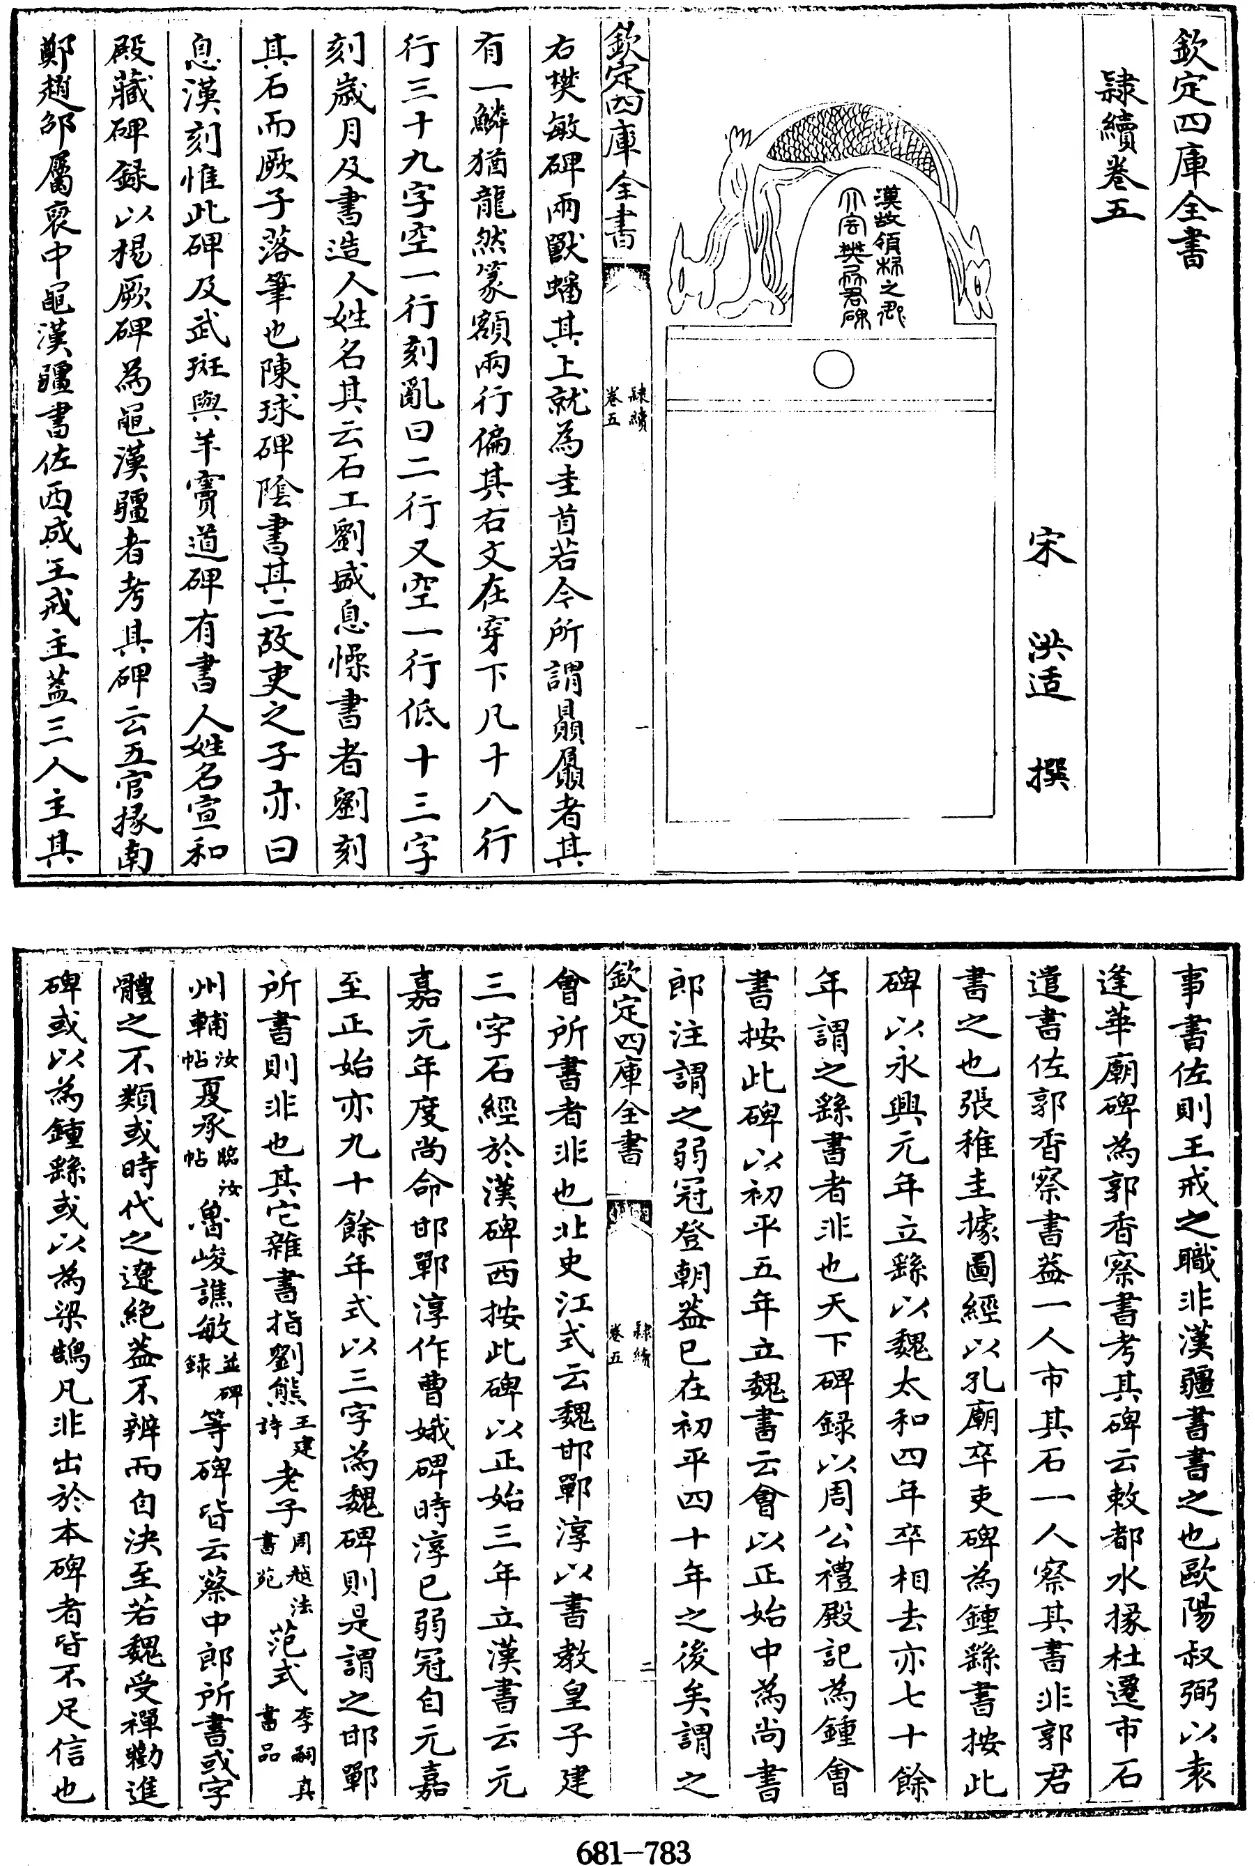 欽定四庫全書
隸續卷五
宋 洪适 撰
漢故領校之卿
碑
欽定四庫全書
隸續
卷五
一
右樊敏碑兩獸蟠其上就為圭首若今所謂贔屭者其
有一鱗猶龍然篆額兩行偏其右文在穿下凡十八行
行三十九字空一行刻亂曰二行又空一行低十三字
刻歲月及書造人姓名其云石工劉盛息懆書者劉刻
其石而厥子落筆也陳球碑陰書其二故吏之子亦曰
息漢刻惟此碑及武斑與羊竇道碑有書人姓名宣和
殿藏碑録以楊厥碑為黽漢疆者考其碑云五官掾南
鄭趙邵屬襃中黽漢疆書佐西成王戒主蓋三人主其
事書佐則王戒之職非漢疆書書之也歐陽叔弼以袁
逢華廟碑為郭香察書考其碑云敕都水掾杜遷市石
遣書佐郭香察書蓋一人市其石一人察其書非郭君
書之也張稚圭據圖經以孔廟卒吏碑為鍾繇書按此
碑以永興元年立繇以魏太和四年卒相去亦七十餘
年謂之繇書者非也天下碑録以周公禮殿記為鍾會
書按此碑以初平五年立魏書云會以正始中為尚書
郎注謂之弱冠登朝蓋已在初平四十年之後矣謂之
欽定四庫全書
隸續
卷五
二
會所書者非也北史江式云魏邯鄲淳以書教皇子建
三字石經於漢碑西按此碑以正始三年立漢書云元
嘉元年度尚命邯鄲淳作曹娥碑時淳已弱冠自元嘉
至正始亦九十餘年式以三字為魏碑則是謂之邯鄲
所書則非也其它雜書指劉熊王建詩老子周越法書苑范式李嗣真書品
州輔汝帖夏承臨汝帖魯峻譙敏並碑録等碑皆云蔡中郎所書或字
體之不類或時代之遼絕蓋不辨而自決至若魏受禪勸進
碑或以為鍾繇或以為梁鵠凡非出於本碑者皆不足信也
681-783